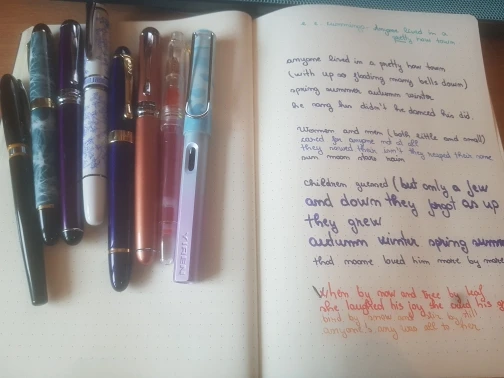 e. e. cummings, Anyone lived in a
pretty how town
anyone lived in a pretty how town
(with up so floating many bells down)
spring summer autumn winter
he sang his didn't he danced his did.
Women and men (both little and small)
cared for anyone not at all
they sowed their isn't they reaped their same
sun moon stars rain
children guessed (but only a few
and down they forgot as up
they grew
autumn winter spring summe
that noone loved him more by more
When by now and tree by leaf
she laughed his joy she cried his g
bird by snow and stir by still
anyone's any was all to her
VIPIEN